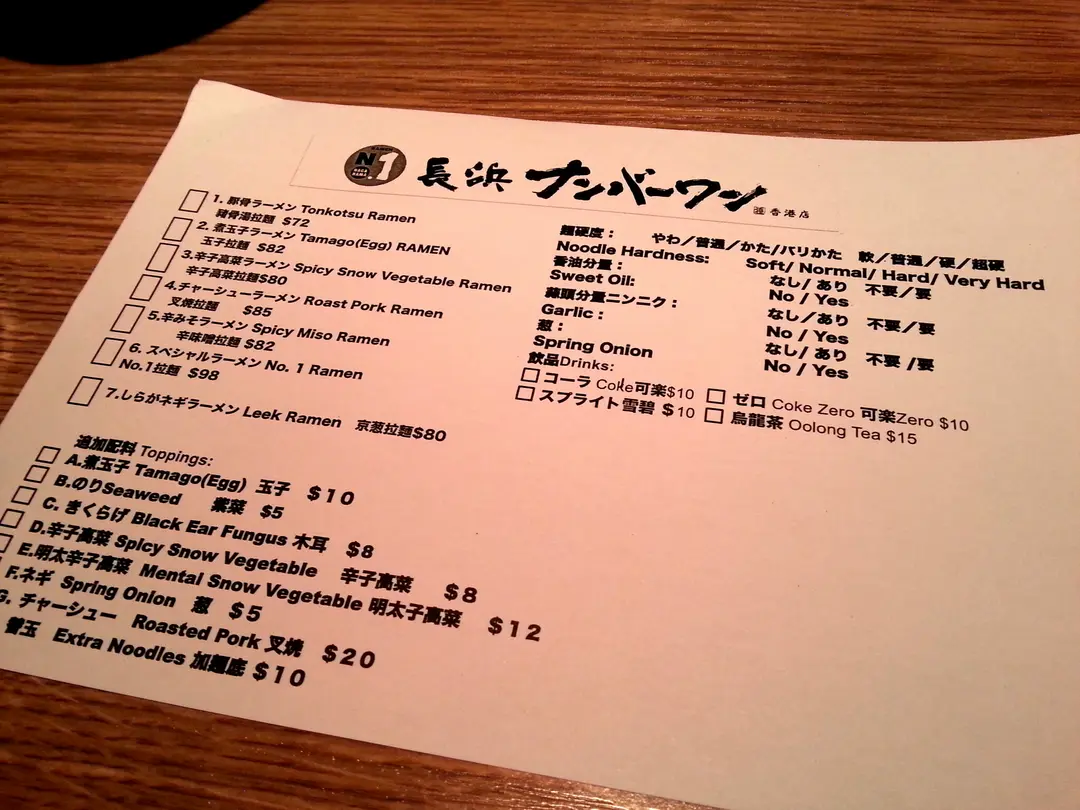 RAMEN
No.1
NAGAHAMA
長浜 ナンバーワン
香港店
1. 豚骨ラーメン Tonkotsu Ramen
豬骨湯拉麵 $72
2. 煮玉子ラーメン Tamago(Egg) RAMEN
玉子拉麵 $82
3.辛子高菜ラーメン Spicy Snow Vegetable Ramen
辛子高菜拉麵$80
4.チャーシューラーメン Roast Pork Ramen
叉燒拉麵 $85
5.辛みそラーメン Spicy Miso Ramen
辛味噌拉麵 $82
6. スペシャルラーメン No. 1 Ramen
No.1拉麵 $98
7.しらがネギラーメン Leek Ramen 京葱拉麵$80
追加配料 Toppings:
A.煮玉子 Tamago(Egg) 玉子 $10
B.のりSeaweed 紫菜 $5
C. きくらげ Black Ear Fungus 木耳 $8
D.辛子高菜 Spicy Snow Vegetable 辛子高菜 $8
E.明太辛子高菜 Mental Snow Vegetable 明太子高菜 $12
F.ネギ Spring Onion 葱 $5
G. チャーシュー Roasted Pork 叉燒 $20
替玉 Extra Noodles 加麵底 $10
麵硬度： やわ／普通／かた/バリかた 軟／普通／硬／超硬
Noodle Hardness: Soft/ Normal/ Hard/ Very Hard
香油分量： なし/ あり 不要／要
Sweet Oil: No / Yes
蒜頭分量ニンニク： なし/ あり 不要／要
Garlic： No / Yes
葱： なし/ あり 不要 /要
Spring Onion No / Yes
飲品Drinks:
コーラ Coke可楽$10 ゼロ Coke Zero 可楽Zero $10
スプライト雪碧 $10 烏龍茶 Oolong Tea $15